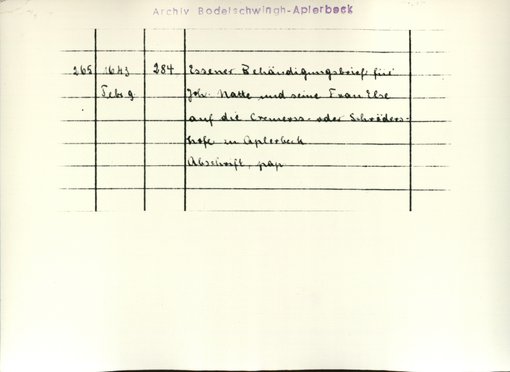 Archiv Bodelschwingh-Aplerbeck
265 1643 284 Essener Behändigungsbrief für
Febr 9 Joh. Natte und seine Frau Else
auf die Cremerss- oder Schröders-
hofe in Aplerbeck
Abschrift, pap